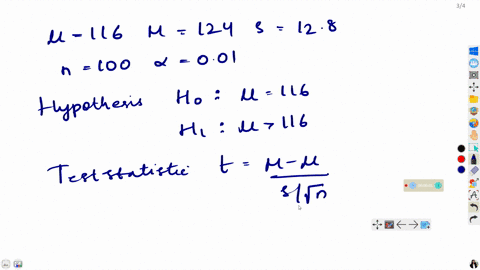 3/4
μ - 116 M = 124 s = 12.8
n = 100 α = 0.01
Hypothesis H₀ : μ = 116
H₁ : μ > 116
Test statistic t = M - μ / s/√n